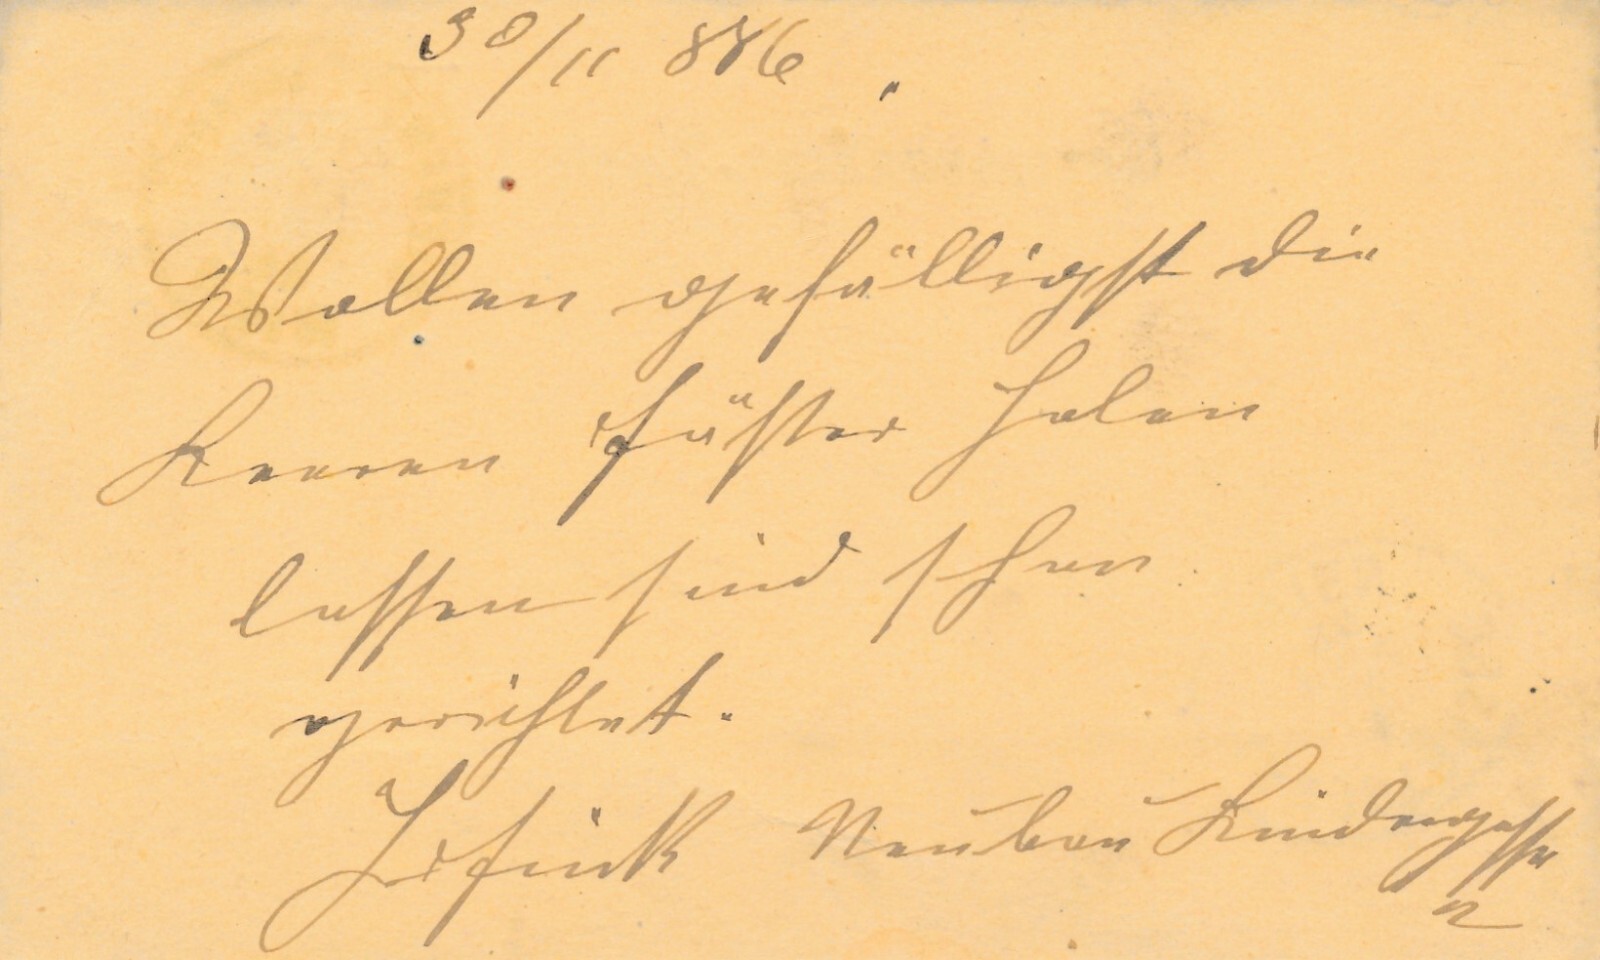 30/11 886
Wollen gefälligst die
leeren Fässer holen
lassen sind schon
gerichtet.
Fink Neubau Lindengasse
2